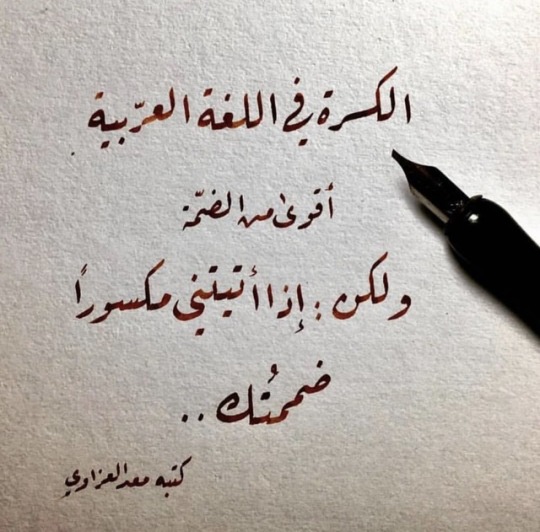 الكسرة في اللغة العربّية
أقوىٰ من الضمّة
ولكن : إذا أتيتني مكسوراً
ضممُتك ..
كتبه معد العزاوي